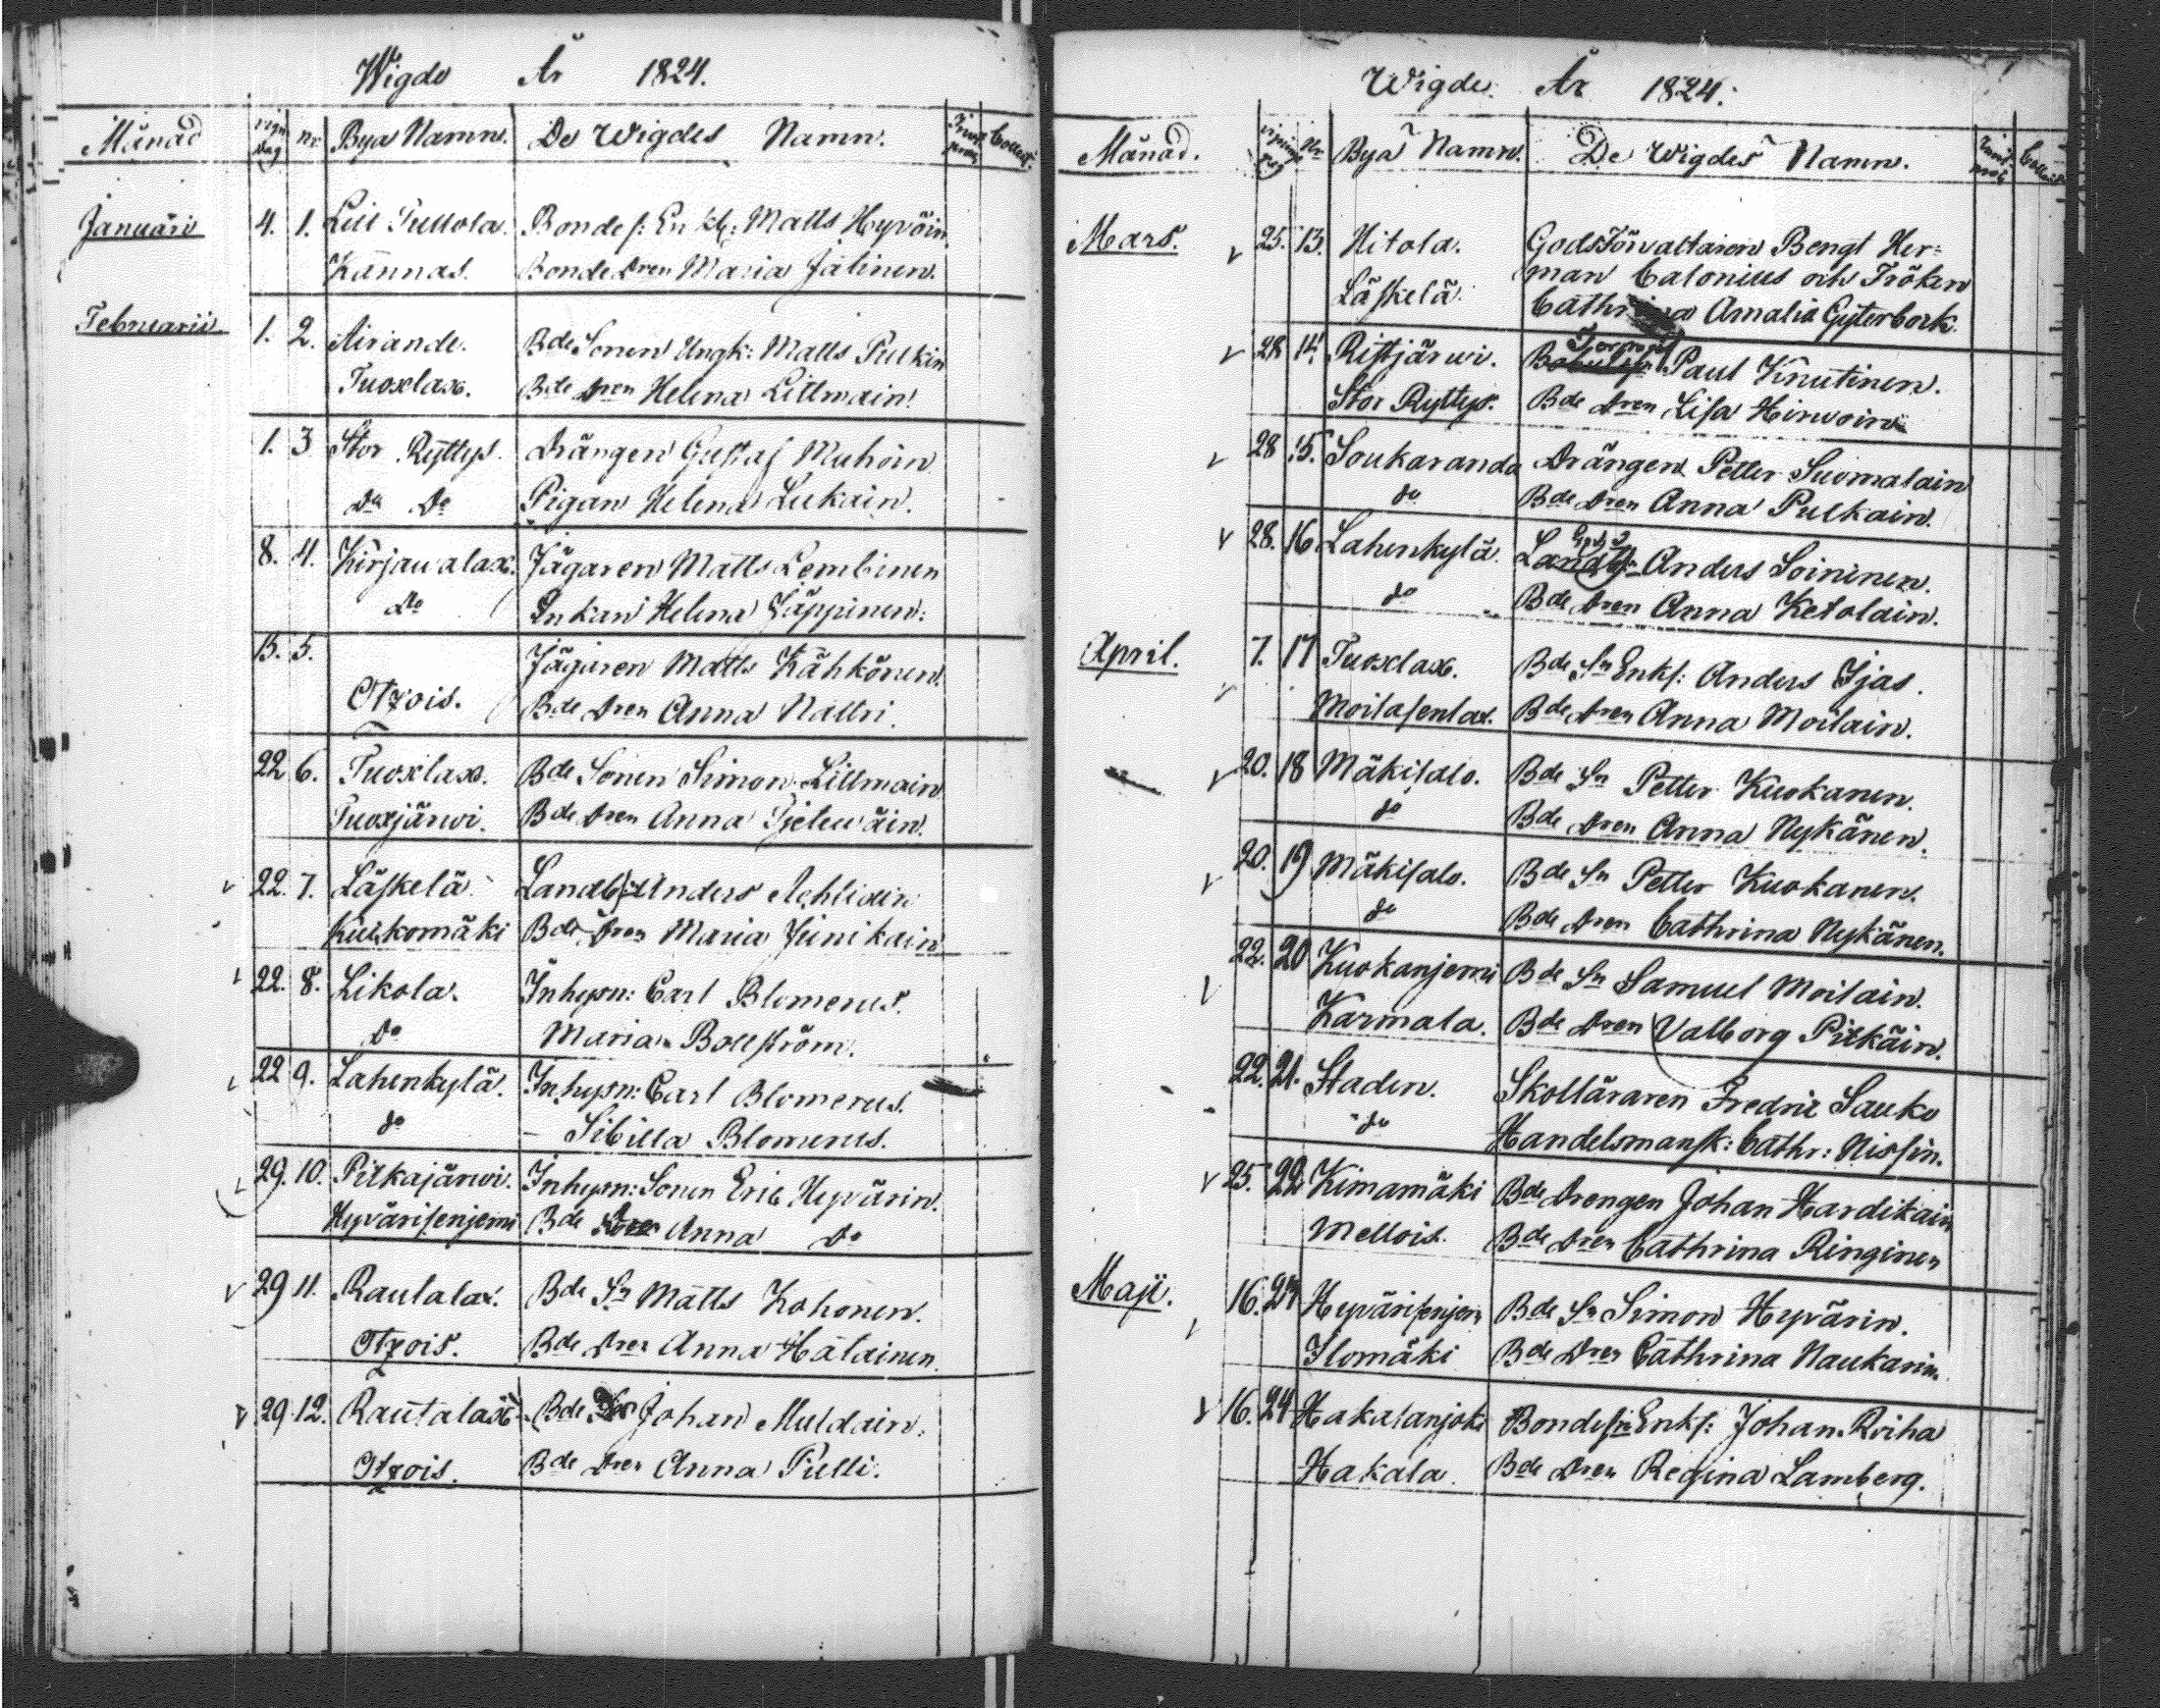 Wigde År 1824.
Månad Vign dag nr. Bya Namn. De Wigdes Namn. Collect.
Januari 4. 1. Lill Pullola. Bonde s: Enkl: Matts Hyvöin
Kannas. Bonde Dren Maria Jälinen.
Februarii 1. 2. Airande. Bde Sonen Ungk: Matts Pulkin
Tuoxlax. Bde Dren Helena Littmain.
1. 3 Stor Ryttys. Drängen Gustaf Muhoin
Do Do Pigan Helena Leskain.
8. 4. Kirjavalax. Jägaren Matts Lembinen
Do Enkan Helena Jäppinen:
15. 5. Jägaren Matts Kähkönen.
Otzois. Bde Dren Anna Nattri.
22 6. Tuoxlax. Bde Sonen Simon Littmain
Tuoxjärwi. Bde Dren Anna Pjelewäin.
22. 7. Läskelä Landb:s Anders Ahlidin
Kuiskomäki Bde Dren Maria Jeinikain
22. 8. Likola. Inhysn: Carl Blomerus.
Do Maria Bollström.
22 9. Lahenkylä. Inhysn: Carl Blomerus.
do Sibilla Blomerus.
29. 10. Pitkäjärwi. Inhysn: Sonen Eric Hyvärin.
Hyvärisenjemi Bde Dren Anna Do
29 11. Rautalax. Bde Sn Matts Kohonen.
Otzois. Bde Dren Anna Hätainen.
29 12. Rautalax Bde Johan Muldain.
Otzois. Bde Dren Anna Pulli.
Wigde År 1824.
Månad. vignings Dag Nr Bya Namn. De Wigdes Namn. Collect
Mars. 25. 13. Hitola. Gods Förvaltaren Bengt Her-
Läskelä. man Calonius och Fröken
Cathrina Amalia Gyterbock.
28 14. Ristjärwi. Torpare Paul Knutinen.
Stor Ryttys. Bde Dren Lisa Hirwoin
28 15. Soukaranda Drängen Petter Suomalain
do Bde Dren Anna Pulkain.
28. 16 Lahenkylä. Landb: Anders Soininen.
do Bde Dren Anna Ketolain.
April. 7. 17 Tuoxlax. Bde Sn Enkl: Anders Ijas.
Moilasenlax. Bde Dren Anna Moilain.
20. 18 Mäkisalo. Bde Sn Petter Kuokanen.
do Bde Dren Anna Nykänen.
20. 19 Mäkisalo. Bde Sn Petter Kuokanen.
do Bde Dren Cathrina Nykänen.
22. 20 Kuokanjemi Bde Sn Samuel Moilain.
Karmala. Bde Dren Valborg Pitkäin.
22. 21. Staden. Skolläraren Fredric Sauko
do Handelsmansk: Cathr: Nissin.
25. 22 Kimamäki Bde Drengen Johan Hardikain
Mellois. Bde Dren Cathrina Ringinen
Maji. 16. 24 Hyvärisenjem Bde Sn Simon Hyvärin.
Ilomäki Bde Dren Cathrina Naukarin.
16. 24 Hakalanjoki Bondesn Enkl: Johan Roiha
Hakala. Bde Dren Regina Lamberg.